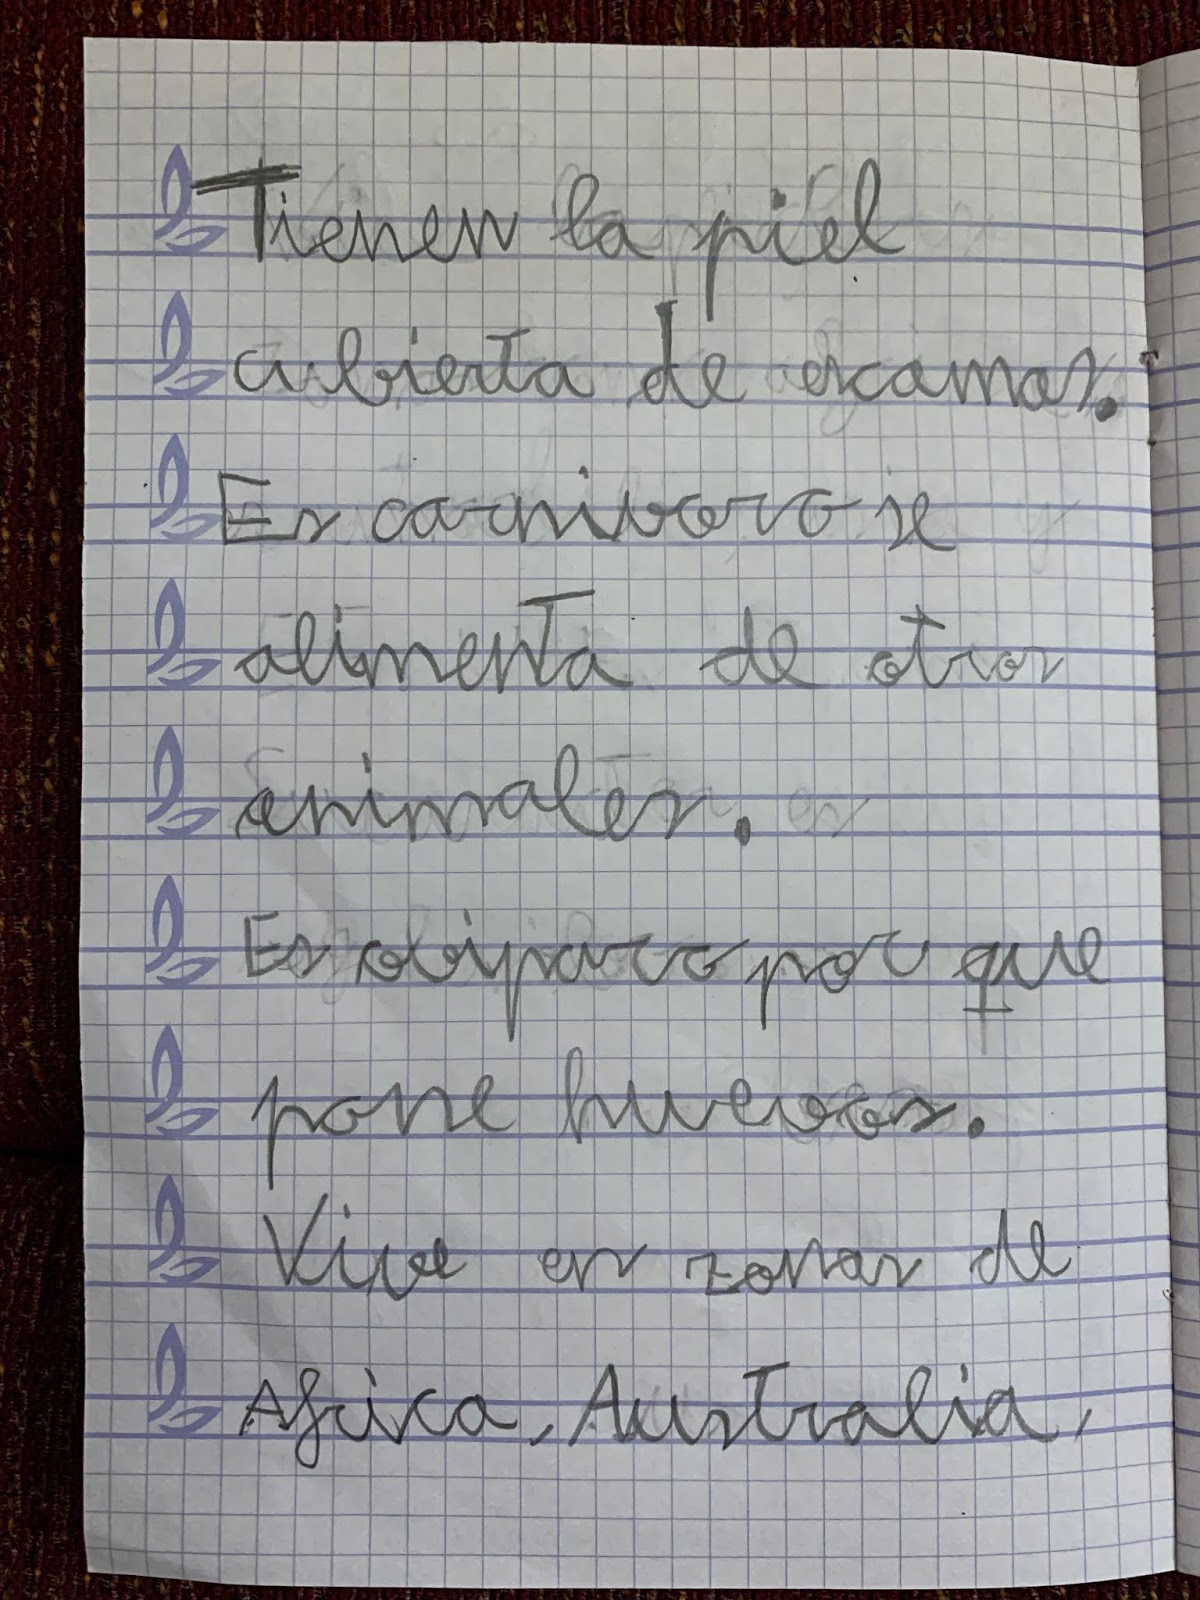 Tienen la piel
cubierta de escamas.
Es carnivoro se
alimenta de otros
animales.
Es obiparo por que
pone huevos.
Vive en zonas de
Africa, Australia,